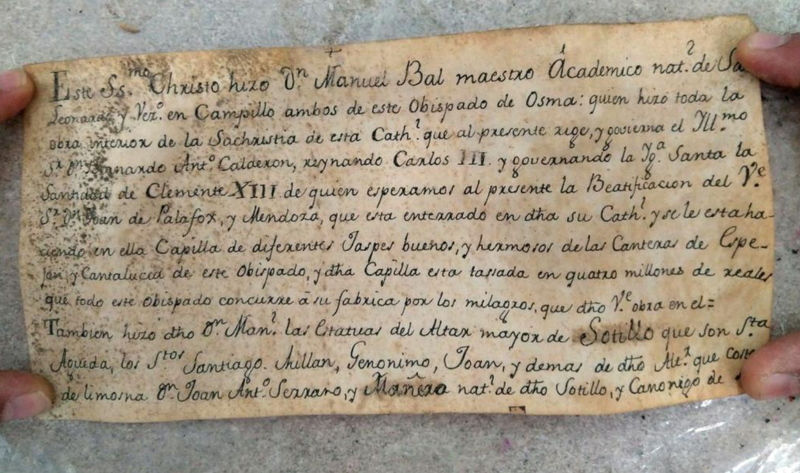 Este Ss.mo Christo hizo D.n Manuel Bal maestro Academico nat.l de Sa
Leonardo y Vez.o en Campillo ambos de este Obispado de Osma: quien hizó toda la
obra interior de la Sachristia de esta Cath.l que al presente rige, y governa el Ill.mo
S.r D.n Bernardo Ant.o Calderon, reynando Carlos III. y governando la Yg.a Santa la
Santidad de Clemente XIII de quien esperamos al presente la Beatificacion del V.e
S.r D.n Joan de Palafox, y Mendoza, que esta enterrado en dha su Cath.l y se le esta ha-
ciendo en ella Capilla de diferentes Jaspes buenos, y hermosos de las Canteras de Espe-
jon y Cantalucea de este Obispado, y dha Capilla esta tassada en quatro millones de reales
que todo este Obispado concurre á su fabrica por los milagros, que dho V.e obra en el=
Tambien hizo dho D.n Man.l las Estatuas del Altar mayor de Sotillo que son S.ta
Agueda, los S.tos Santiago. Millan, Geronimo, Joan, y demas de dho Alt.r que costeó
de limosna D.n Joan Ant.o Serrano, y Mañero nat.l de dho Sotillo, y Canonigo de